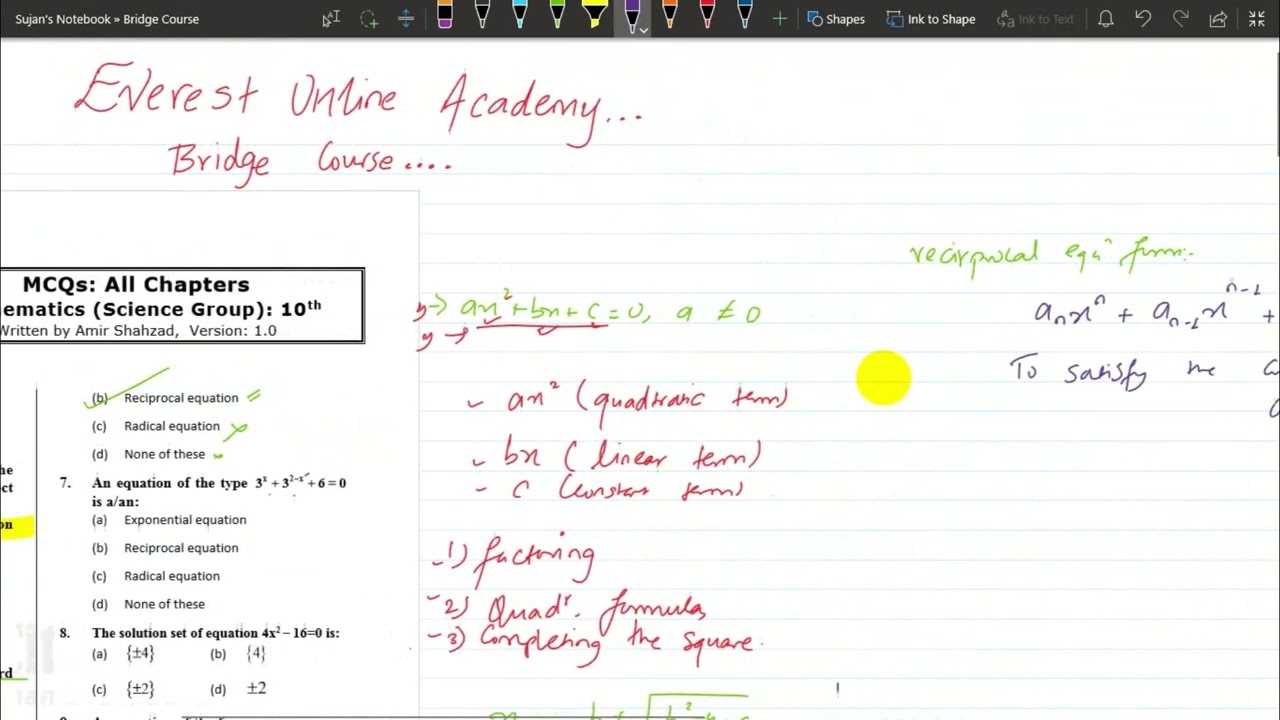 Sujan's Notebook » Bridge Course
Shapes
Ink to Shape
Ink to Text
Everest Online Academy...
Bridge Course....
MCQs: All Chapters
ematics (Science Group): 10th
Written by Amir Shahzad, Version: 1.0
(b) Reciprocal equation
(c) Radical equation
(d) None of these
7. An equation of the type 3^x + 3^(2-x) + 6 = 0
is a/an:
(a) Exponential equation
(b) Reciprocal equation
(c) Radical equation
(d) None of these
8. The solution set of equation 4x² – 16=0 is:
(a) {±4} (b) {4}
(c) {±2} (d) ±2
he
ct
on
rd
ax² + bx + c = 0, a ≠ 0
ax² (quadratic term)
bx (linear term)
c (constant term)
1) factoring
2) Quadr. formula
3) Completing the square
reciprocal eqn form:
aₙxⁿ + aₙ₋₁xⁿ⁻¹ +
To satisfy the